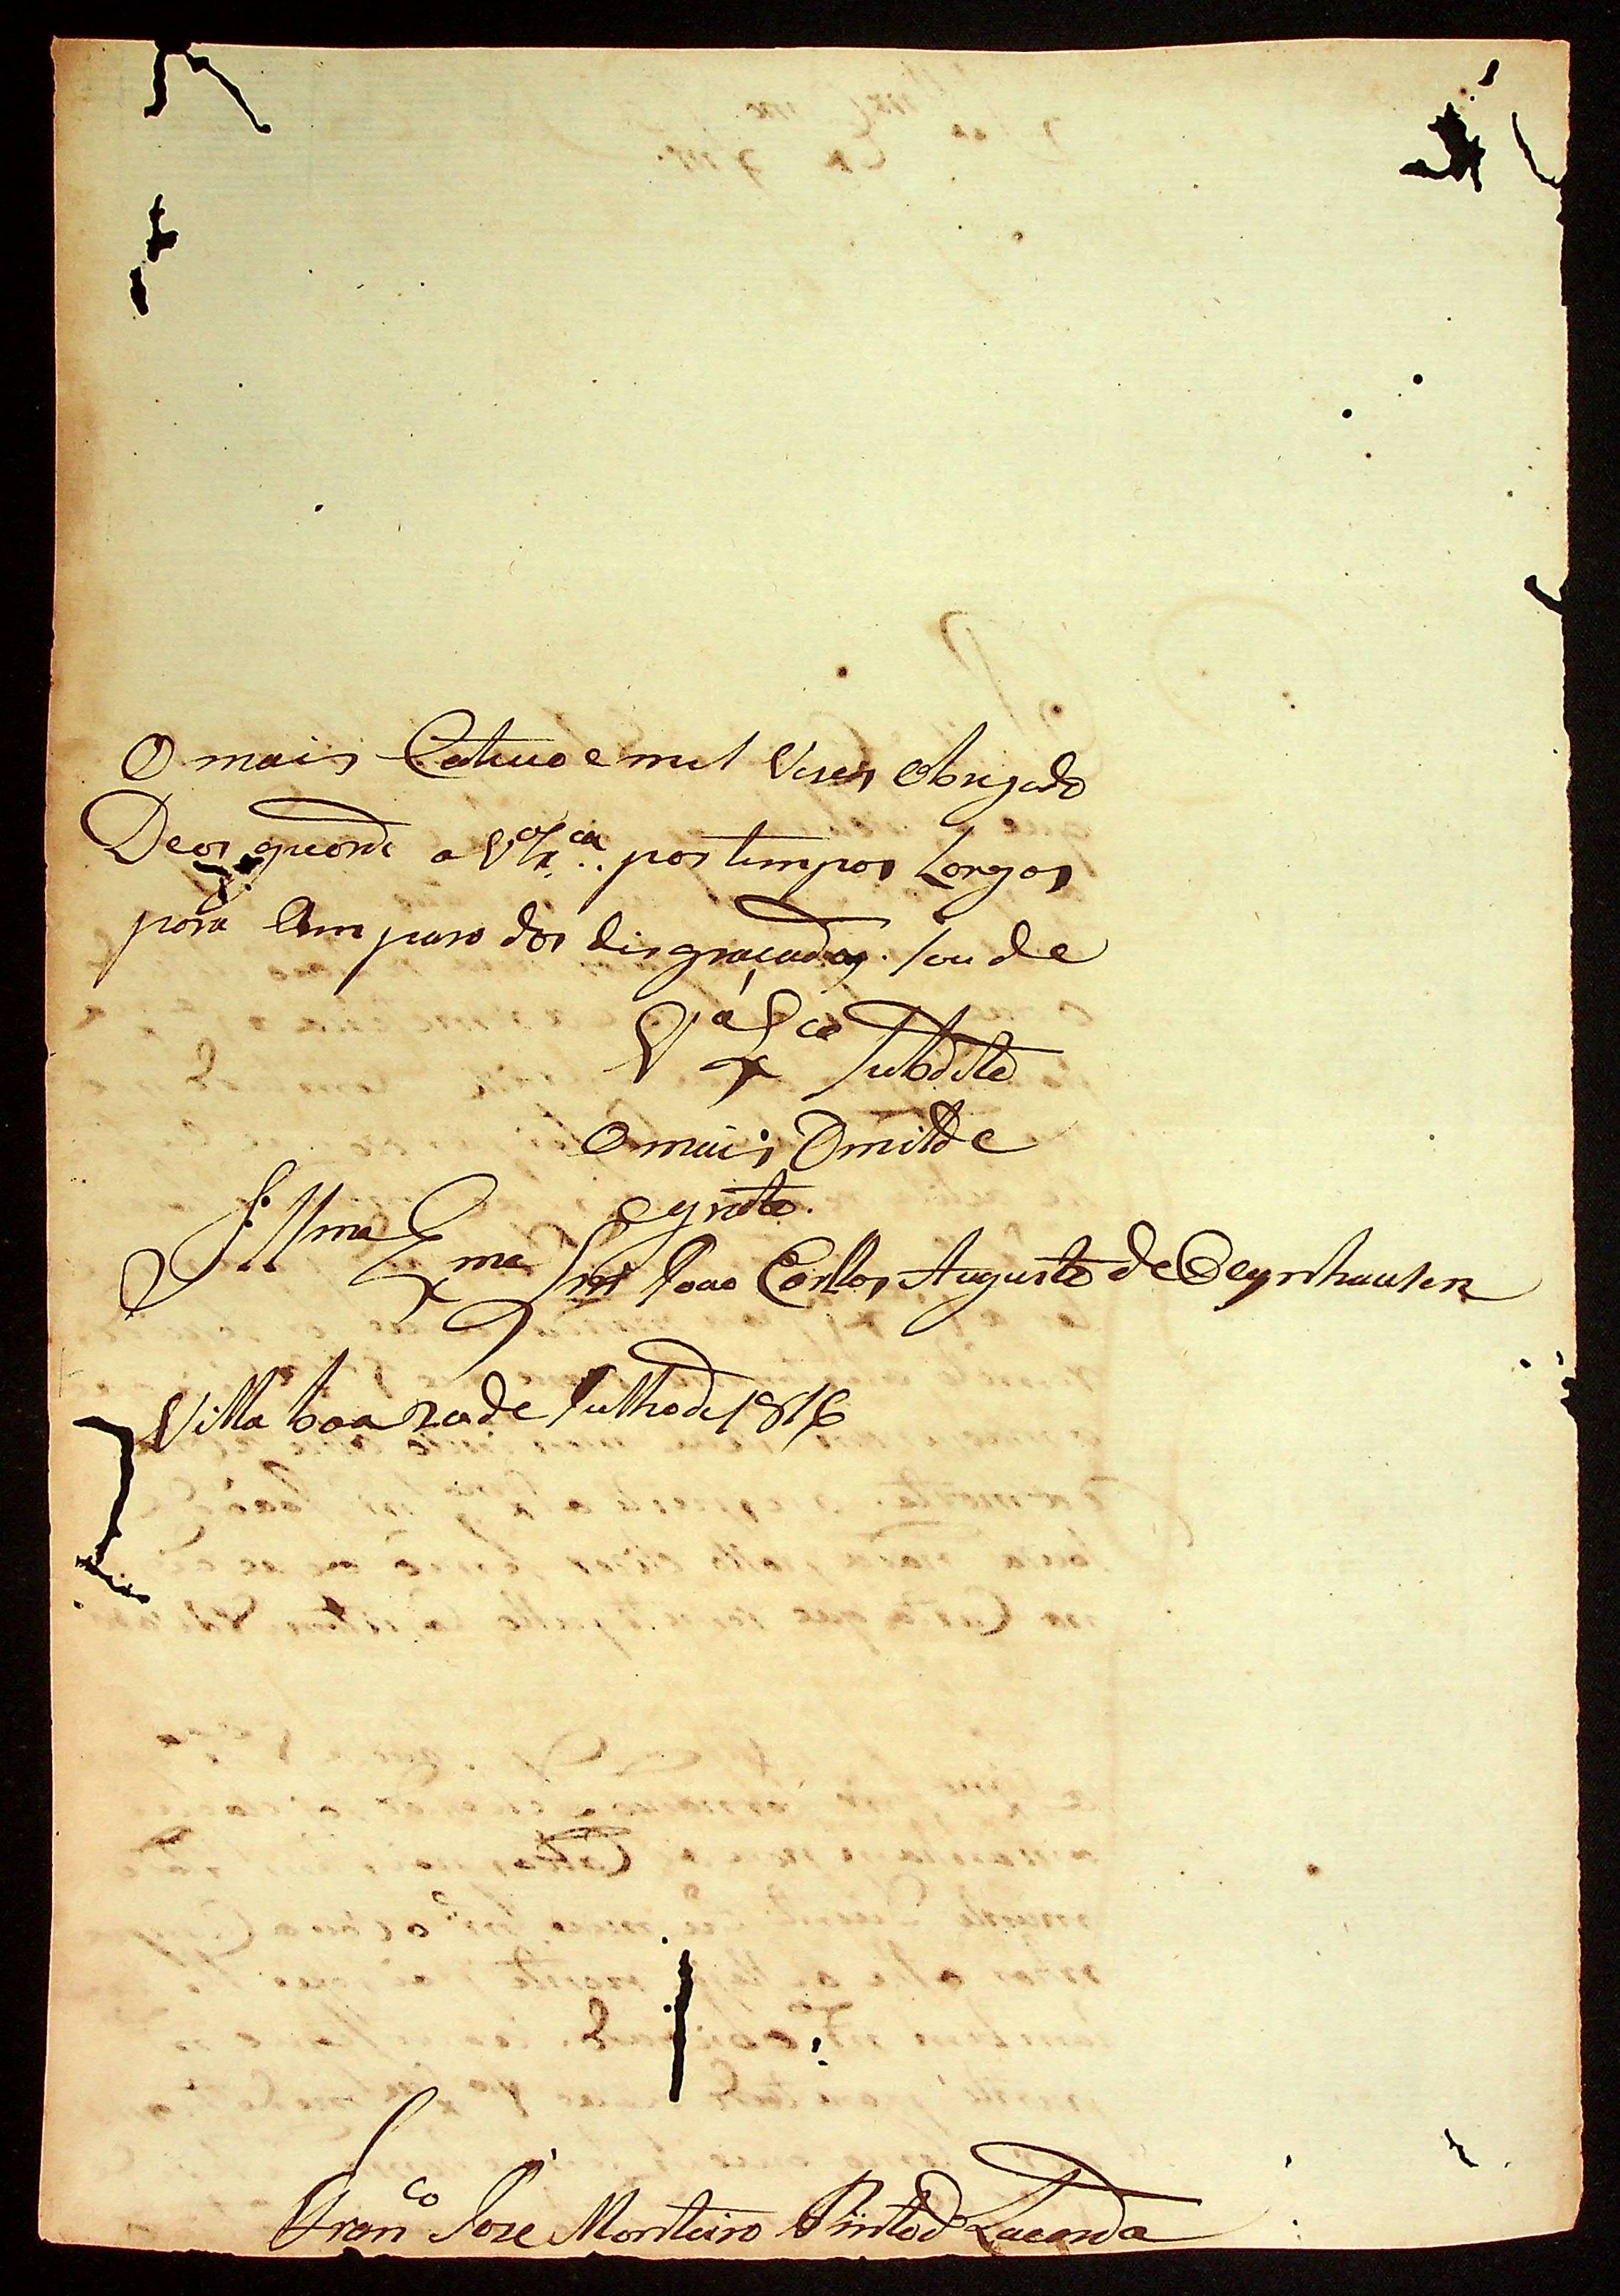 O mais Catiuo e mil Veses obrigado
Deos guarde a V Exca. por tempos Largos
para Amparo dos disgraçados. sou de
Va Exca Subdito
O mais Omilde
e grato.
Illmo Exmo Snr João Carllos Augusto de Oeynhausen
Villa boa de Julho de 1816
Franco Jose Monteiro Pinto de Lacerda